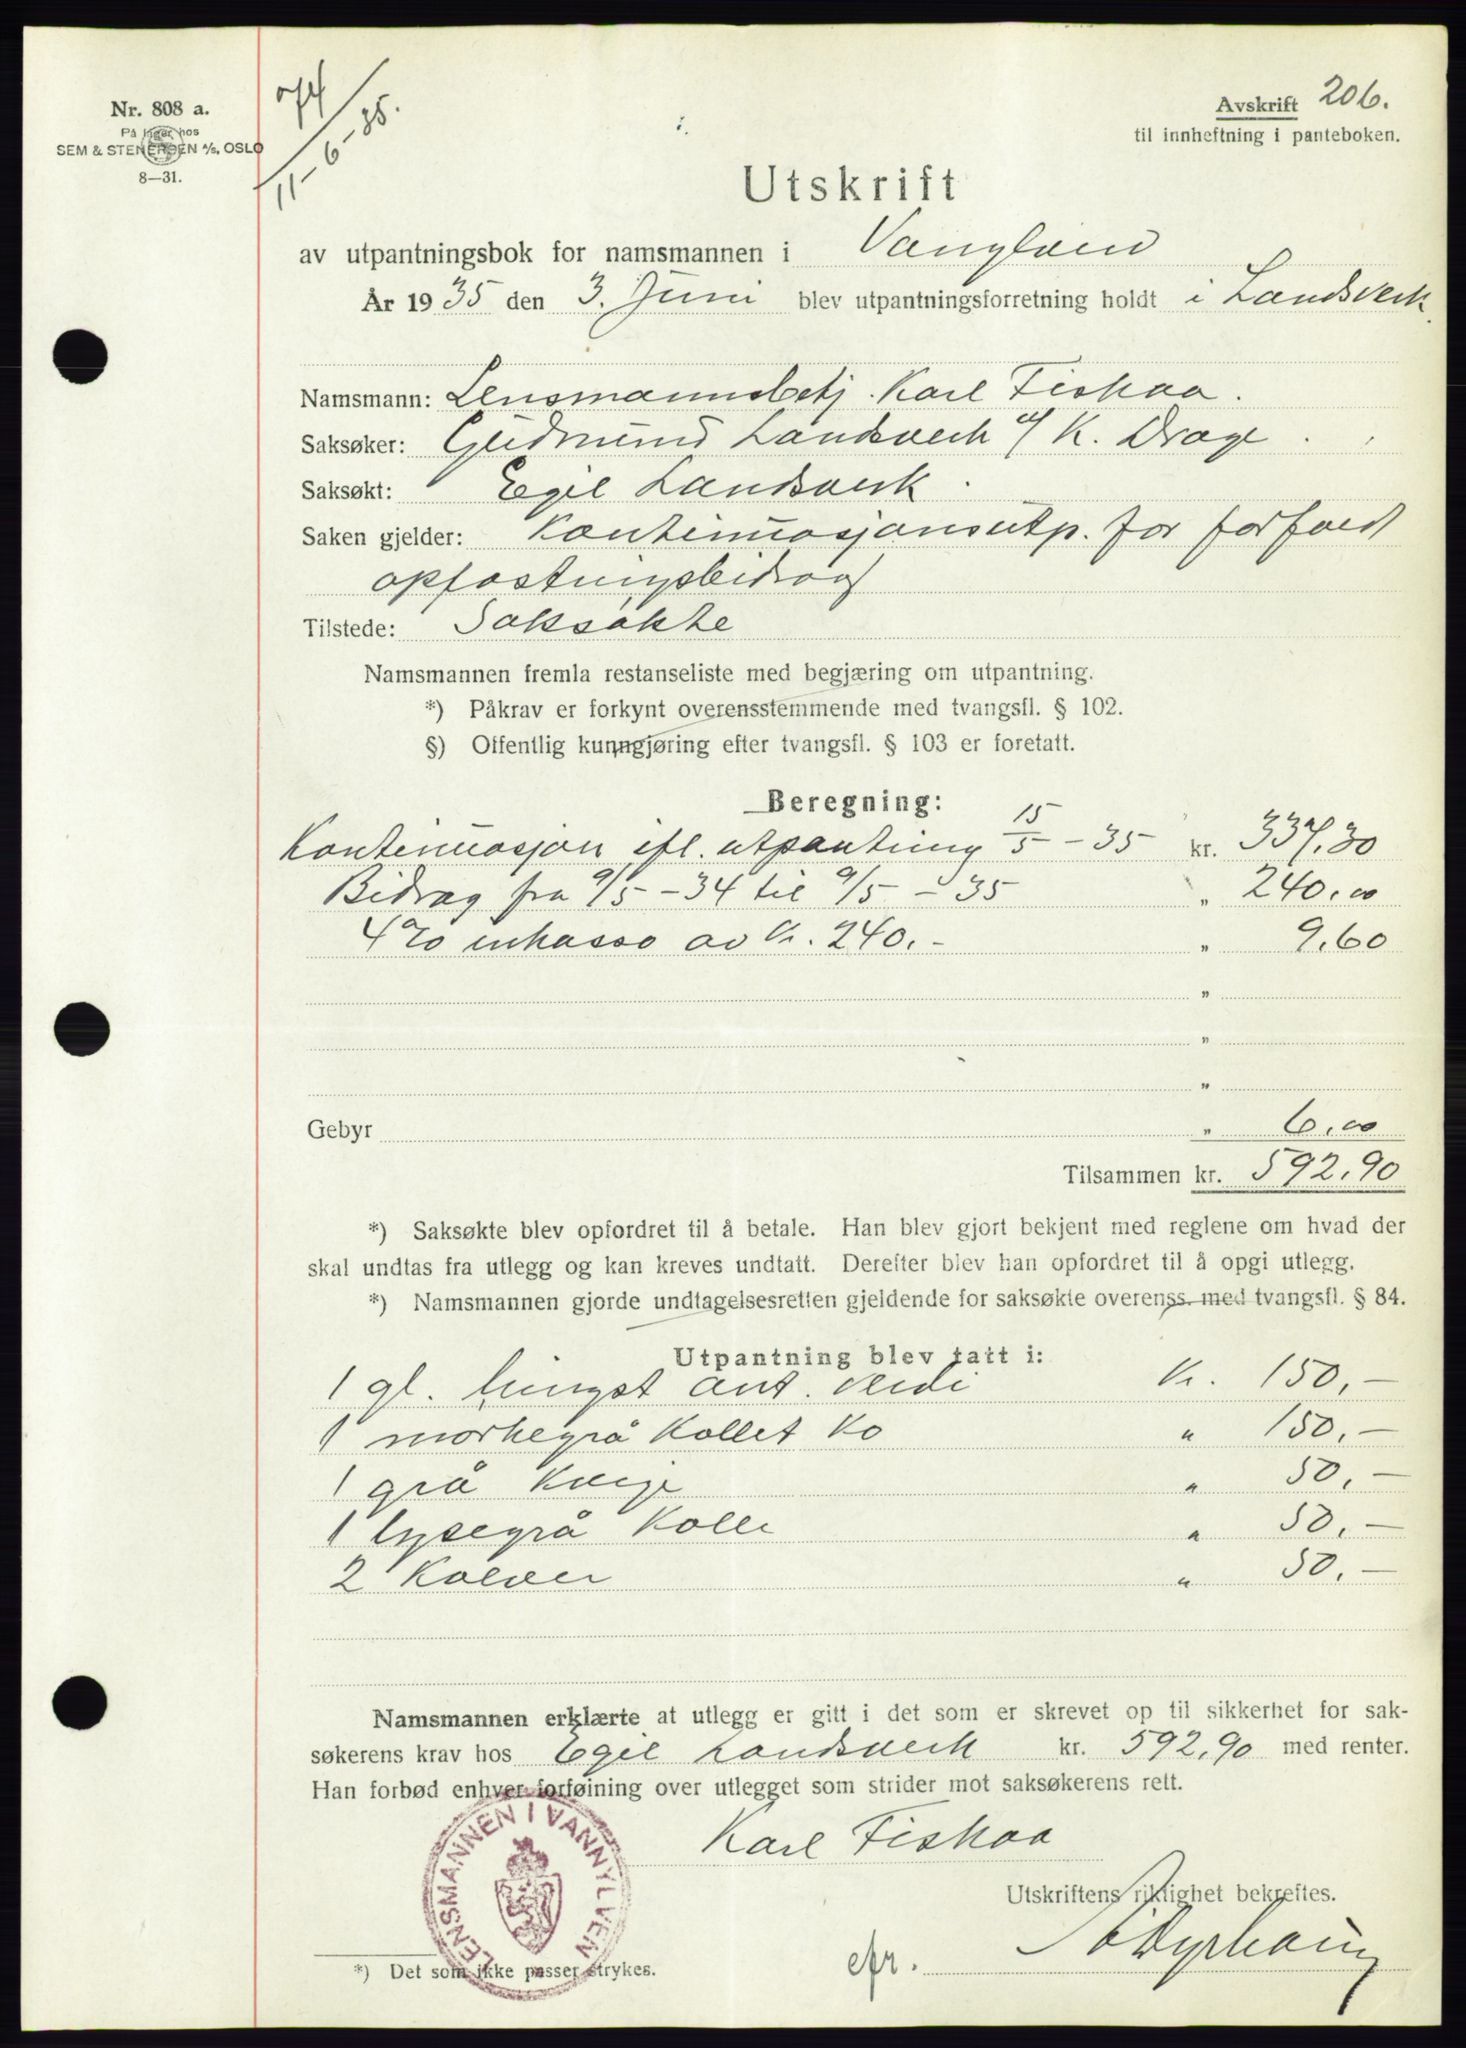 Nr. 808 a.
På lager hos
SEM & STENERSEN A/S, OSLO
8—31.
974
11-6-35.
Avskrift 206.
til innheftning i panteboken.
Utskrift
av utpantningsbok for namsmannen i
År 1935 den 3. Juni blev utpantningsforretning holdt i Landsverk.
Namsmann: Lensmannsbetj. Karl Fiskaa.
Saksøker: Gudmund Landsverk v/ K. Drage.
Saksøkt: Egil Landsverk.
Saken gjelder: Kontinuasjonsutp. for forfalt
opfostringsbidrag
Tilstede: Saksøkte
Namsmannen fremla restanseliste med begjæring om utpantning.
*) Påkrav er forkynt overensstemmende med tvangsfl. § 102.
§) Offentlig kunngjøring efter tvangsfl. § 103 er foretatt.
Beregning:
Kontinuasjon ifl. utpantning 15/5 - 35 kr. 337,30
Bidrag fra 9/5 - 34 til 9/5 - 35 " 240,00
4% inkasso av kr. 240,- " 9,60
"
"
"
Gebyr " 6,00
Tilsammen kr. 592,90
*) Saksøkte blev opfordret til å betale. Han blev gjort bekjent med reglene om hvad der
skal undtas fra utlegg og kan kreves undtatt. Derefter blev han opfordret til å opgi utlegg.
*) Namsmannen gjorde undtagelsesretten gjeldende for saksøkte overenss. med tvangsfl. § 84.
Utpantning blev tatt i:
1 gl. hingst ant. verdi Kr. 150,-
1 mørkegrå kollet ko " 150,-
1 grå kvige " 50,-
1 lysegrå kolle " 50,-
2 kalver " 50,-
Namsmannen erklærte at utlegg er gitt i det som er skrevet op til sikkerhet for sak-
søkerens krav hos Egil Landsverk kr. 592,90 med renter.
Han forbød enhver forføining over utlegget som strider mot saksøkerens rett.
Karl Fiskaa
LENSMANNEN I VANNYLVEN
Utskriftens riktighet bekreftes.
efr.
*) Det som ikke passer strykes.